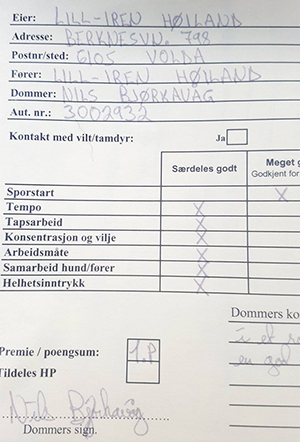 Eier: LILL-IREN HØILAND
Adresse: BERKNESVN. 798
Postnr/sted: 6105 VOLDA
Fører: LILL-IREN HØILAND
Dommer: NILS BJØRKAVAG
Aut. nr.: 3002932
Kontakt med vilt/tamdyr: Ja
Særdeles godt Meget g
Godkjent for
Sporstart X
Tempo X
Tapsarbeid X
Konsentrasjon og vilje X
Arbeidsmåte X
Samarbeid hund/fører X
Helhetsinntrykk X
Dommers ko
i et
en god
Premie / poengsum: 1.P
Tildeles HP
Nils
Dommers sign.